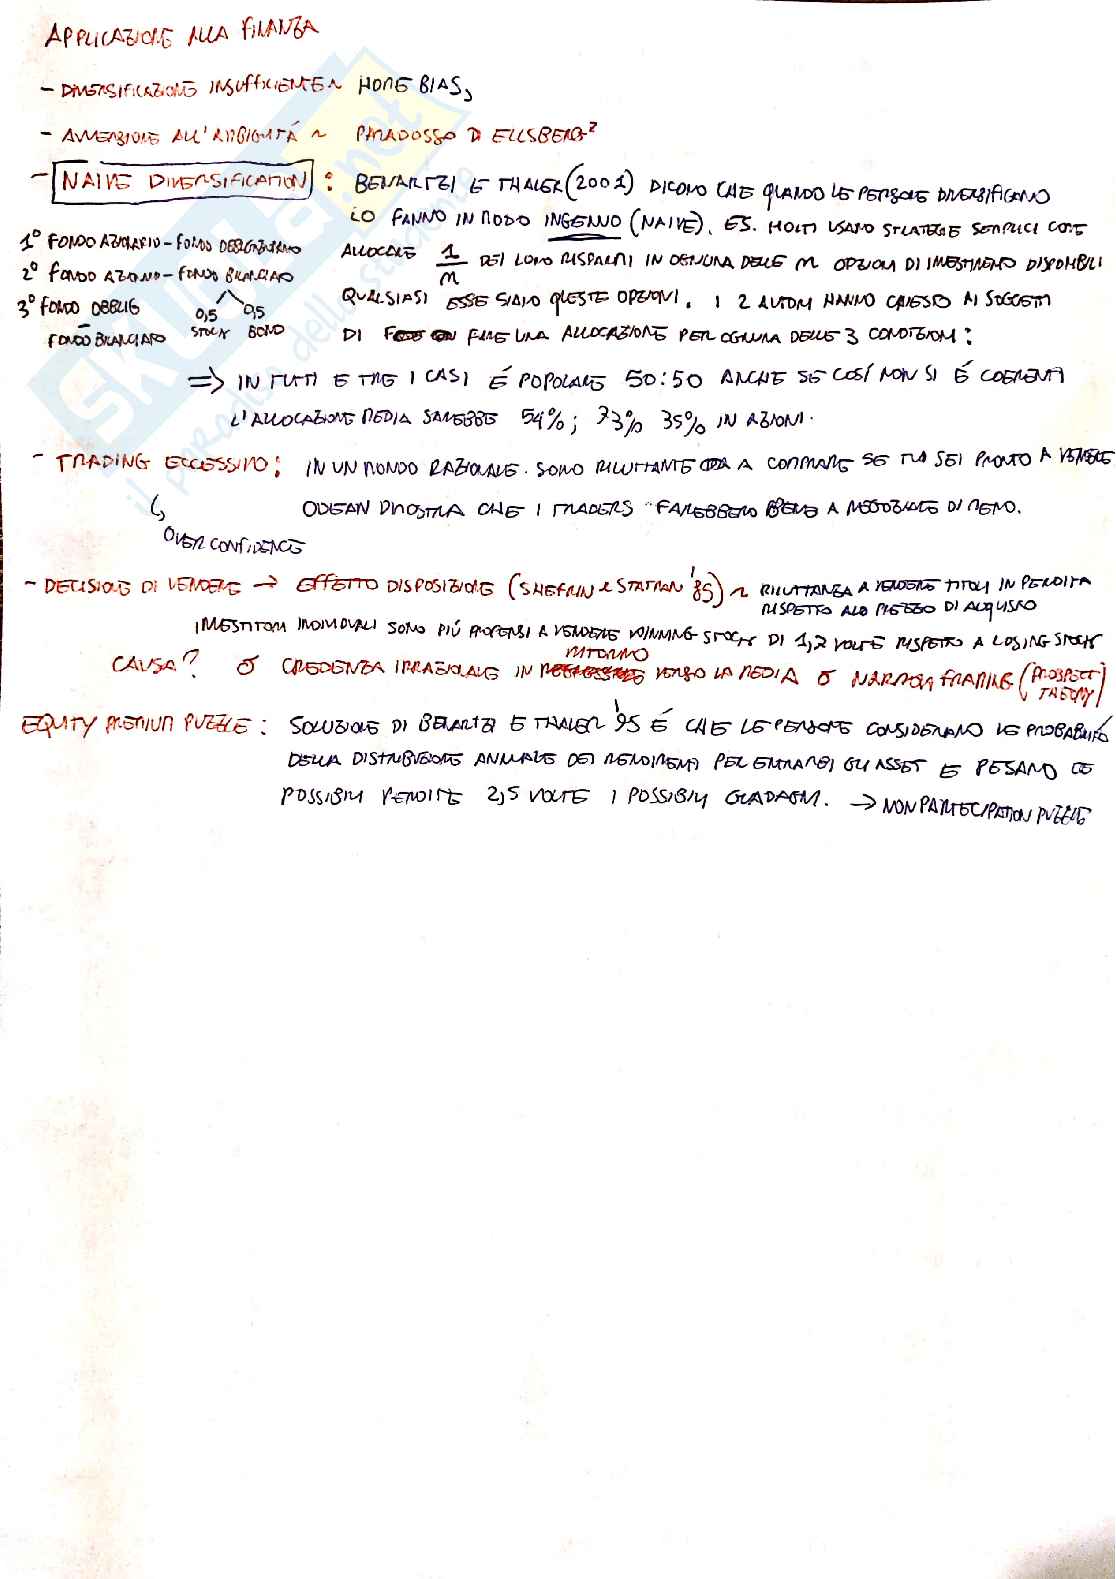 APPLICAZIONE ALLA FINANZA
- DIVERSIFICAZIONE INSUFFICIENTE ~ HOME BIAS,
- AVVERSIONE ALL'AMBIGUITÁ ~ PARADOSSO DI ELLSBERG²
- NAIVE DIVERSIFICATION : BENARTZI E THALER (2001) DICONO CHE QUANDO LE PERSONE DIVERSIFICANO
LO FANNO IN MODO INGENUO (NAIVE). ES. MOLTI USANO STRATEGIE SEMPLICI COME
ALLOCARE 1/n DEI LORO RISPARMI IN OGNUNA DELLE n OPZIONI DI INVESTIMENTO DISPONIBILI
QUALSIASI ESSE SIANO QUESTE OPZIONI. I 2 AUTORI HANNO CHIESTO AI SOGGETTI
DI FARE UNA ALLOCAZIONE PER OGNUNA DELLE 3 CONDIZIONI:
1° FONDO AZIONARIO - FONDO OBBLIGAZIONARIO
2° FONDO AZION.O - FONDO BILANCIATO
0,5 0,5
STOCK BOND
3° FONDO OBBLIG
FONDO BILANCIATO
=> IN TUTTI E TRE I CASI É POPOLARE 50:50 ANCHE SE COSÍ NON SI É COERENTI
L'ALLOCAZIONE MEDIA SAREBBE 54%; 73% 35% IN AZIONI.
- TRADING ECCESSIVO: IN UN MONDO RAZIONALE. SONO RILUTTANTE A COMPRARE SE TU SEI PRONTO A VENDERE
ODEAN DIMOSTRA CHE I TRADERS FAREBBERO BENE A NEGOZIARE DI MENO.
OVER CONFIDENCE
- DECISIONE DI VENDERE → EFFETTO DISPOSIZIONE (SHEFRIN & STATMAN '85) ~ RILUTTANZA A VENDERE TITOLI IN PERDITA
RISPETTO ALO PREZZO DI ACQUISTO
INVESTITORI INDIVIDUALI SONO PIÚ PROPENSI A VENDERE WINNING STOCKS DI 1,7 VOLTE RISPETTO A LOSING STOCKS
CAUSA? O CREDENZA IRRAZIONALE IN RITORNO VERSO LA MEDIA O NARROW FRAMING (PROSPECT THEORY)
EQUITY PREMIUM PUZZLE: SOLUZIONE DI BENARTZI E THALER '95 É CHE LE PERSONE CONSIDERANO LE PROBABILITÁ
DELLA DISTRIBUZIONE ANNUALE DEI RENDIMENTI PER ENTRAMBI GLI ASSET E PESANO LE
POSSIBILI PERDITE 2,5 VOLTE I POSSIBILI GUADAGNI. → NON PARTECIPATION PUZZLE
skuola.net
il paradiso dello studente